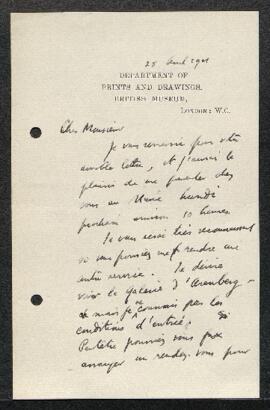 25 avril 1901
DEPARTMENT OF
PRINTS AND DRAWINGS,
BRITISH MUSEUM,
LONDON: W.C.
Cher Monsieur
Je vous remercie pour votre
aimable lettre, et j'aurai le
plaisir de me rendre chez
vous au Musée lundi
prochain environ 10 heures.
Je vous serai très reconnaissant
si vous pourriez me rendre un
autre service. Je désire
voir la galerie d'Arenberg
mais je ne connais pas les
conditions d'entrée. Si
Peut-être pourriez vous
arranger un rendez-vous pour